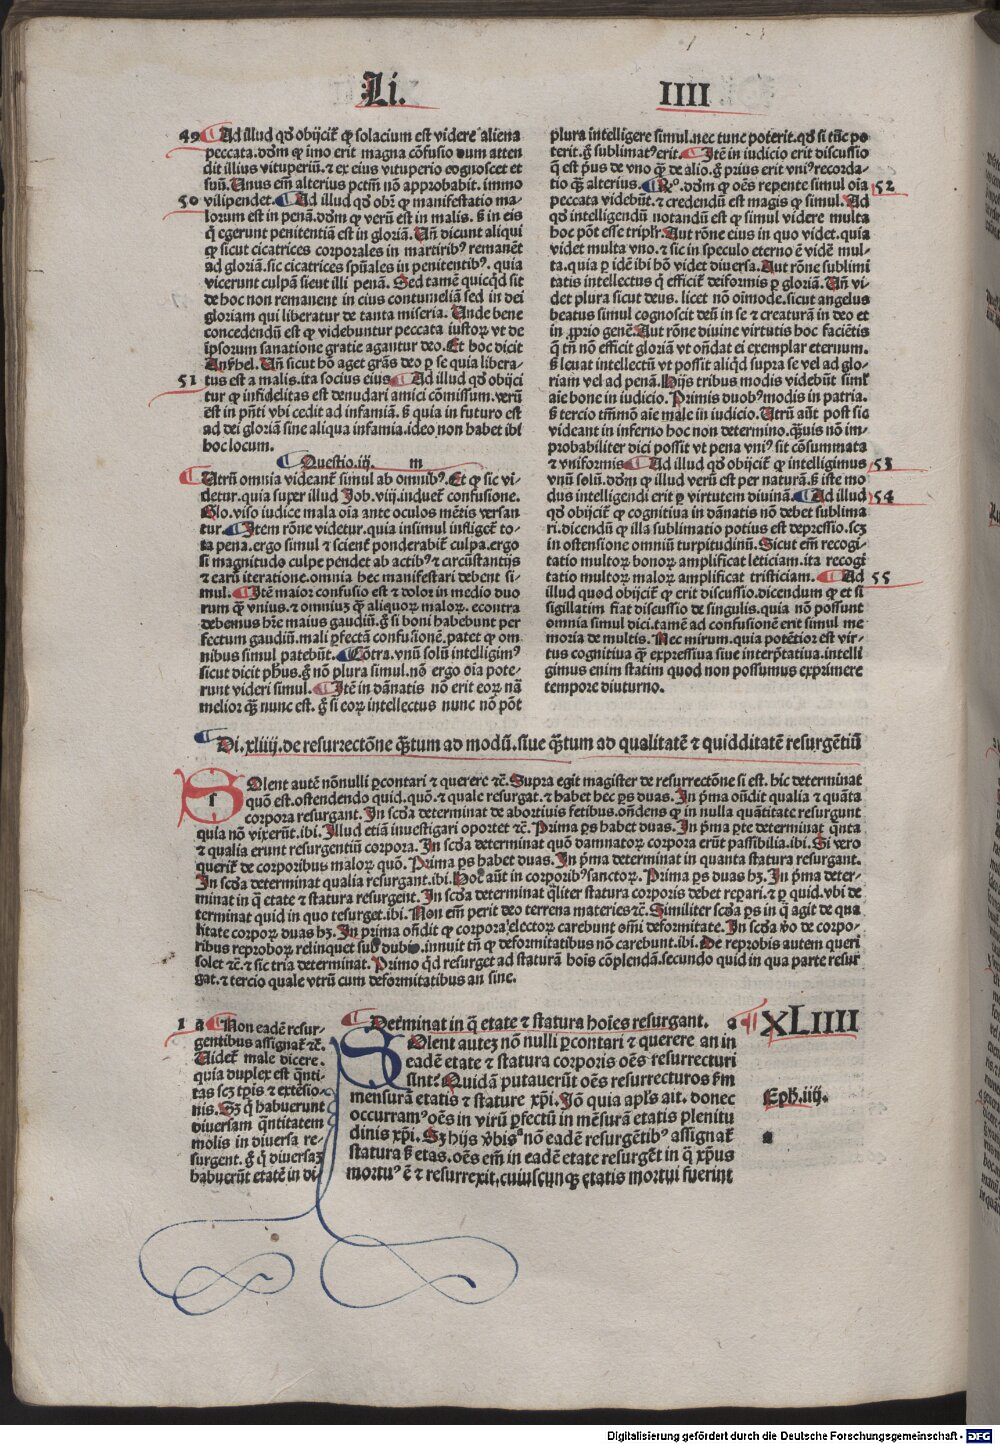 Li.
IIII
49 Ad illud qđ obijcit̉ ꝙ solacium est videre aliena
peccata. dōm ꝙ imo erit magna cōfusio dum atten
dit illius vituperiū. ⁊ ex eius vituperio cognoscet et
suū. Unus em̄ alterius pctm̄ nō approbabit. immo
50 vilipendet. Ad illud qđ obr̄ ꝙ manifestatio ma-
lorum est in penā. dōm ꝙ verū est in malis. ß in eis
q̄ egerunt penitentiā est in gloriā. Un̄ dicunt aliqui
ꝙ sicut cicatrices corporales in martiribꝰ remanēt
ad gloriā. sic cicatrices spūales in penitentibꝰ. quia
vicerunt culpā sicut illi penā. Sed tamē quicqđ sit
de hoc non remanent in eius contumeliā sed in dei
gloriam qui liberatur de tanta miseria. Unde bene
concedendū est ꝙ videbuntur peccata iustoꝝ vt de
ipsorum sanatione gratie agantur deo. Et hoc dicit
Anshel. Un̄ sicut hō aget grās deo ꝑ se quia libera-
51 tus est a malis. ita socius eius. Ad illud qđ obijci
tur ꝙ infidelitas est denudari amici cōmissum. verū
est in pn̄ti vbi cedit ad infamiā. ß quia in futuro est
ad dei gloriā sine aliqua infamia. ideo non habet ibi
hoc locum.
Questio. iij. m
Utrū omnia videant̉ simul ab omnibꝰ. Et ꝙ sic vi-
detur. quia super illud Job. viij. induent̉ confusione.
Glo. viso iudice mala oia ante oculos mētis versan
tur. Item rōne videtur. quia insimul infliget̉ to-
ta pena. ergo simul ⁊ scient̉ ponderabit̉ culpa. ergo
si magnitudo culpe pendet ab actibꝰ ⁊ circūstantijs
⁊ earū iteratione. omnia hec manifestari debent si-
mul. Itē maior confusio est ⁊ dolor in medio duo
rum q̄ꝫ vnius. ⁊ omniuꝫ q̄ꝫ aliquoꝝ maloꝝ. econtra
debemus hr̄e maius gaudiū. ḡ si boni habebunt per
fectum gaudiū. mali ꝑfectā confusionē. patet ꝙ om
nibus simul patebūt. Cōtra. vnū solū intelligimꝰ
sicut dicit phūs. ḡ nō plura simul. nō ergo oia pote-
runt videri simul. Itē in dānatis nō erit eoꝝ nā
melior q̄ꝫ nunc est. ḡ si eoꝝ intellectus nunc nō pōt
plura intelligere simul. nec tunc poterit. qđ si tūc po
terit. ḡ sublimatꝰ erit. Itē in iudicio erit discussio
q̄ est pꝰus de vno q̄ꝫ de alio. ḡ prius erit vniꝰ recorda-
tio q̄ꝫ alterius. Rº. dōm ꝙ oēs repente simul oia 52
peccata videbūt. ⁊ credendū est magis ꝙ simul. Ad
qđ intelligendū notandū est ꝙ simul videre multa
hoc pōt esse triplr̄. Aut rōne eius in quo videt. quia
videt multa vno. ⁊ sic in speculo eterno ē vidē mul-
ta. quia ꝑ idē ibi hō videt diuersa. Aut rōne sublimi
tatis intellectus q̄ efficit̉ deiformis ꝑ gloriā. Un̄ vi-
det plura sicut deus. licet nō oīmode. sicut angelus
beatus simul cognoscit deū in se ⁊ creaturā in deo et
in ꝓprio genē. Aut rōne diuine virtutis hoc faciētis
q̄ tn̄ nō efficit gloriā vt on̄dat ei exemplar eternum.
ß leuat intellectū vt possit aliqđ supra se vel ad glo-
riam vel ad penā. Hijs tribus modis videbūt simľ
aie bone in iudicio. Primis duobꝰ modis in patria.
ß tercio tm̄mō aie male in iudicio. Utrū aūt post sic
videant in inferno hoc non determino. q̄ꝫuis nō im-
probabiliter dici possit vt pena vniꝰ sit cōsummata
⁊ vniformis. Ad illud qđ obijcit̉ ꝙ intelligimus 53
vnū solū. dōm ꝙ illud verū est per naturā. ß iste mo
dus intelligendi erit ꝑ virtutem diuinā. Ad illud 54
qđ obijcit̉ ꝙ cognitiua in dānatis nō debet sublima
ri. dicendū ꝙ illa sublimatio potius est depressio. scꝫ
in ostensione omniū turpitudinū. Sicut em̄ recogi-
tatio multoꝝ bonoꝝ amplificat leticiam. ita recogi
tatio multoꝝ maloꝝ amplificat tristiciam. Ad 55
illud quod obijcit̉ ꝙ erit discussio. dicendum ꝙ et si
sigillatim fiat discussio de singulis. quia nō possunt
omnia simul dici. tamē ad confusionē erit simul me
moria de multis. Nec mirum. quia potētior est vir-
tus cognitiua q̄ꝫ expressiua siue interp̄tatiua. intelli
gimus enim statim quod non possumus exprimere
tempore diuturno.
Di. xliiij. de resurrectōne q̄ꝫtum ad modū. siue q̄ꝫtum ad qualitatē ⁊ quidditatē resurgētiū
SOlent autē nōnulli ꝑcontari ⁊ querere ⁊c̄. Supra egit magister de resurrectōne si est. hic determinat
quō est. ostendendo quid. quō. ⁊ quale resurgat. ⁊ habet hec ꝑs duas. In p̄ma on̄dit qualia ⁊ quāta
corpora resurgant. In scđa determinat de abortiuis fetibus. on̄dens ꝙ in nulla quātitate resurgunt
quia nō vixerūt. ibi. Illud etiā inuestigari oportet ⁊c̄. Prima ꝑs habet duas. In p̄ma ꝑte determinat q̄nta
⁊ qualia erunt resurgentiū corpora. In scđa determinat quō damnatoꝝ corpora erūt passibilia. ibi. Si vero
querit̉ de corporibus maloꝝ quō. Prima ꝑs habet duas. In p̄ma determinat in quanta statura resurgant.
In scđa determinat qualia resurgant. ibi. Hoc aūt in corporibꝰ sanctoꝝ. Prima ꝑs duas hꝫ. In p̄ma deter-
minat in q̄ etate ⁊ statura resurgent. In scđa determinat q̄liter statura corporis debet reꝑari. ⁊ ꝑ quid. vbi de
terminat quid in quo resurget. ibi. Non em̄ perit deo terrena materies ⁊c̄. Similiter scđa ꝑs in q̄ agit de qua
litate corpoꝝ duas hꝫ. In prima on̄dit ꝙ corpora electoꝝ carebunt om̄i deformitate. In scđa v̄o de corpo-
ribus reproboꝝ relinquet sub dubio. innuit tn̄ ꝙ deformitatibus nō carebunt. ibi. De reprobis autem queri
solet ⁊c̄. ⁊ sic tria determinat. Primo qđ resurget ad staturā hoīs cōplendā. secundo quid in qua parte resur
gat. ⁊ tercio quale vtrū cum deformitatibus an sine.
1 a Non eadē resur-
gentibus assignat̉ ⁊c̄.
Uidet̉ male dicere.
quia duplex est q̄nti-
tas scꝫ tꝑis ⁊ extēsio-
nis. Sꝫ q̄ habuerunt
diuersam q̄ntitatem
molis in diuersa re-
surgent. ḡ q̄ diuersaꝫ
habuerūt etatē in di-
Determinat in q̄ etate ⁊ statura hoīes resurgant. a
XLIIII
SOlent auteꝫ nō nulli ꝑcontari ⁊ querere an in
eadē etate ⁊ statura corporis oēs resurrecturi
sint. Quidā putauerūt oēs resurrecturos ẜm
mensurā etatis ⁊ stature xp̄i. Jō quia apl's ait. donec
Eph. iiij.
occurramꝰ oēs in virū ꝑfectū in mēsurā etatis plenitu
dinis xp̄i. Sꝫ hijs v̄bis a nō eadē resurgētibꝰ assignat̉
a
statura ß etas. oēs em̄ in eadē etate resurgēt in q̄ xp̄us
mortuꝰ ē ⁊ resurrexit, cuiuscunqꝫ etatis mortui fuerint
Digitalisierung gefördert durch die Deutsche Forschungsgemeinschaft - DFG